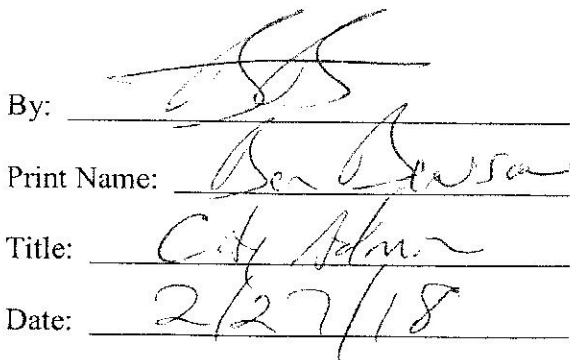 By: BB
Print Name: Ben Benson
Title: City Admin
Date: 2/27/18